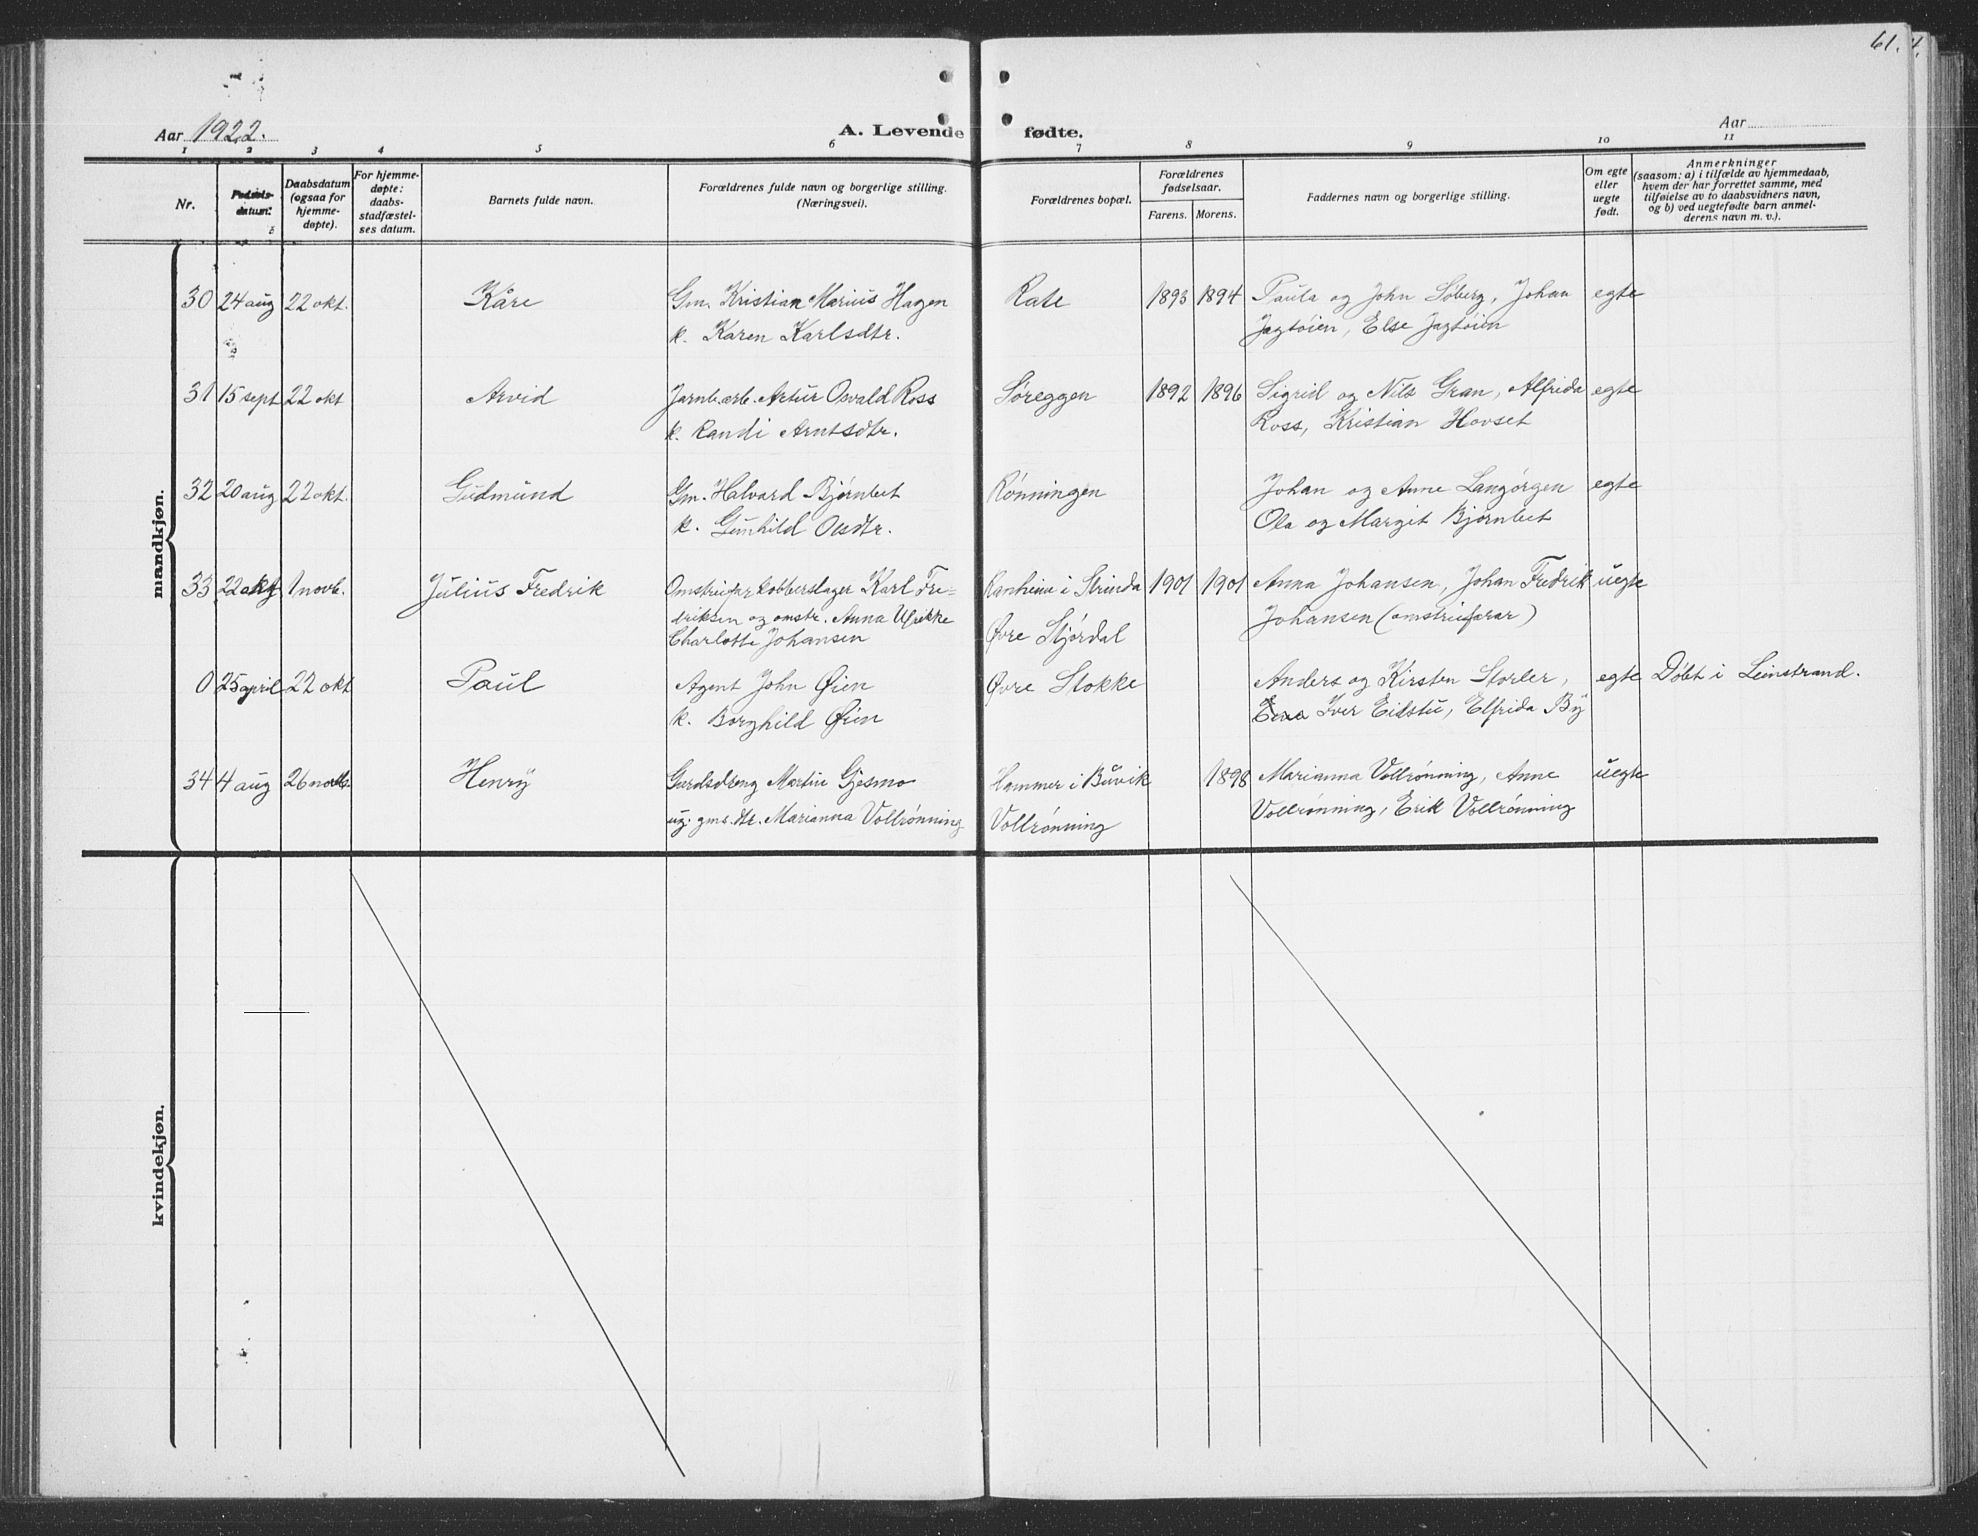 61.
Aar 1922.
A. Levende fødte.
Aar
1 2 3 4 5 6 7 8 9 10 11
Nr.
Fødselsdatum.
Daabsdatum (ogsaa for hjemmedøpte).
For hjemmedøpte: daabsstadfæstelses datum.
Barnets fulde navn.
Forældrenes fulde navn og borgerlige stilling. (Næringsvei).
Forældrenes bopæl.
Forældrenes fødselsaar.
Farens. Morens.
Faddernes navn og borgerlige stilling.
Om egte eller uegte født.
Anmerkninger (saasom: a) i tilfælde av hjemmedaab, hvem der har forrettet samme, med tilføielse av to daabsvidners navn, og b) ved uegtefødte barn anmelderens navn m. v.).
mandkjøn.
30 24 aug 22 okt. Kåre Gm. Kristian Marius Hagen Rate 1893 1894 Paula og John Søberg, Johan egte
k. Karen Karlsdtr. Jagtøien, Else Jagtøien
31 15 sept 22 okt Arvid Jarnb.arb. Artur Osvald Ross Søreggen 1892 1896 Sigrid og Nils Gran, Alfrida egte
k. Randi Arntsdtr. Ross, Kristian Hovset
32 20 aug 22 okt. Gudmund Gm. Halvard Bjørnbet Rønningen Johan og Anne Langørgen egte
k. Gunhild Olsdtr. Ola og Margit Bjørnbet
33 22 okt 1 novb. Julius Fredrik Omstreifar kobberslager Karl Fre- Ranheim i Strinda 1901 1901 Anna Johansen, Johan Fredrik uegte
driksen og omstr. Anna Ulrikke Øvre Stjørdal Johansen (omstreifarar)
Charlotte Johansen
0 25 april 22 okt Paul Agent John Øien Øvre Stokke Anders og Kirsten Storler, egte Døbt i Leinstrand.
k. Borghild Øien Iver Eidstu, Elfrida By
34 4 aug 26 novb. Henry Gardsdreng Martin Gjesmo Hammer i Buvik 1898 Marianna Vollrønning, Anne uegte
ug. gms. dtr. Marianna Vollrønning Vollrønning Vollrønning, Erik Vollrønning
kvindekjøn.